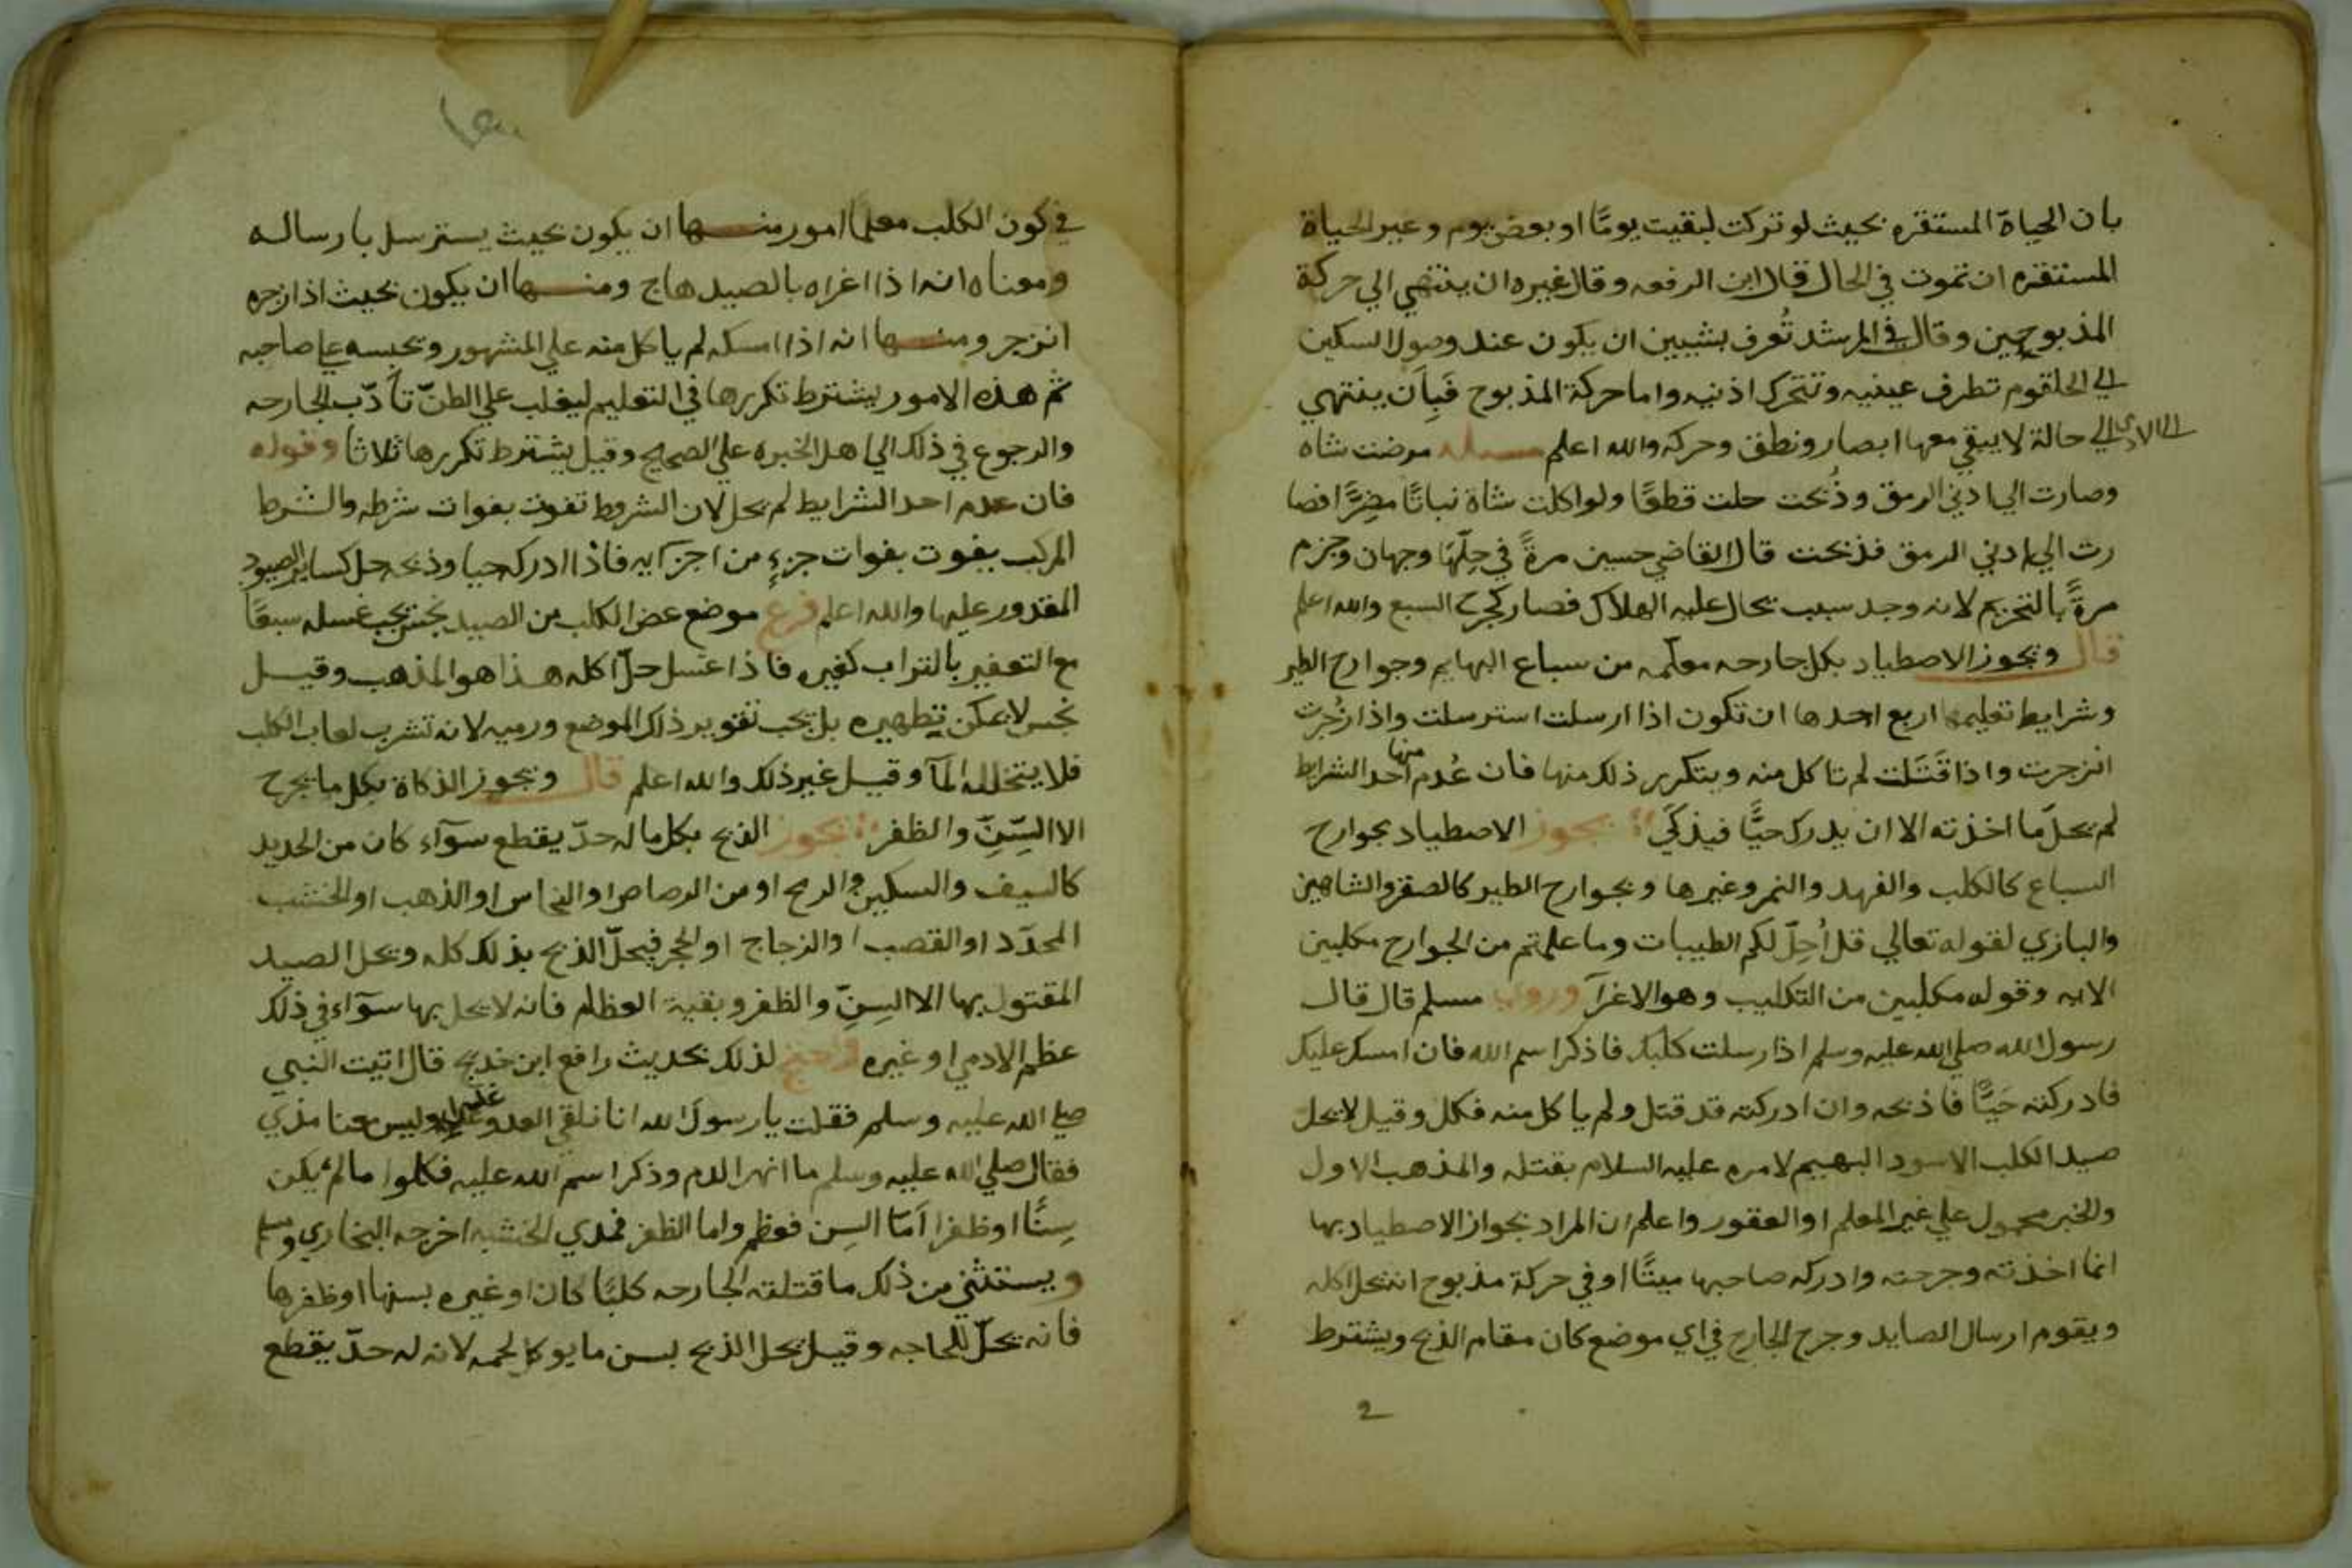 بان الحياة المستقره بحيث لو تركت لبقيت يومًا او بعض يوم وغير الحياة
المستقره ان تموت في الحال قال ابن الرفعه وقال غيره ان ينتهي الي حركة
المذبوحين وقال في المرشد تُعرف بشيين ان يكون عند وصول السكين
الي الحلقوم تطرف عينيه وتتحرك اذنيه واما حركة المذبوح فبِاَن ينتهي
الي حالة لا يبقي معها ابصار ونطق وحركه والله اعلم مسله مرضت شاه
وصارت الي ادني الرمق وذُبحت حلت قطعًا ولو اكلت شاة نباتًا مضِرًّا فصا
رت الي ادني الرمق فذبحت قال القاضي حسين مرةً في حِلّهَا وجهان وجزم
مرةً بالتحريم لانه وجد سبب يحال عليه الهلاك فصار كجرح السبع والله اعلم
قال ويجوز الاصطياد بكل جارحه معلّمه من سباع البهايم وجوارح الطير
وشرايط تعليمها اربع احدها ان تكون اذا ارسلت استرسلت واذا زُجرت
انزجرت واذا قَتَلت لم تاكل منه ويتكرر ذلك منها فان عُدم منها احد الشرايط
لم يحلّ ما اخذته الا ان يدرك حيًّا فيذكّي يجوز الاصطياد بجوارح
السباع كالكلب والفهد والنمر وغيرها وبجوارح الطير كالصقر والشاهين
والبازي لقوله تعالي قل اُحِلّ لكم الطيبات وما علمتم من الجوارح مكلبين
الايه وقوله مكلبين من التكليب وهو الاغرآ وروي مسلم قال قال
رسول الله صلي الله عليه وسلم اذا رسلت كلبك فاذكر اسم الله فان امسك عليك
فادركته حَيًّا فاذبحه وان ادركته قد قتل ولم ياكل منه فكل وقيل لا يحل
صيد الكلب الاسود البهيم لامره عليه السلام بقتله والمذهب الاول
والخبر محمول علي غير المعلم او العقور واعلم ان المراد بجواز الاصطياد بها
انما اخذته وجرحته وادركه صاحبها ميتًا او في حركة مذبوح انه يحل اكله
ويقوم ارسال الصايد وجرح الجارح في اي موضع كان مقام الذبح ويشترط
2
في كون الكلب معلمًا امور منها ان يكون بحيث يسترسل بارساله
ومعناه انه اذا اغراه بالصيد هاج ومنها ان يكون بحيث اذا زجره
انزجر ومنها انه اذا امسكه لم ياكل منه علي المشهور ويحبسه علي صاحبه
ثم هذه الامور يشترط تكررها في التعليم ليغلب علي الظنّ تأدّب الجارحه
والرجوع في ذلك الي اهل الخبره علي الصحيح وقيل يشترط تكررها ثلاثا وقوله
فان عدم احد الشرايط لم يحل لان الشروط تفوت بفوات شرطه والشرط
المركب يفوت بفوات جزءٍ من اجزآيه فاذا ادركه حيا وذبحه حل كساير الصيود
المقدور عليها والله اعلم فرع موضع عض الكلب من الصيد نجس يجب غسله سبعًا
مع التعفير بالتراب كغيره فاذا غسل حلّ اكله هذا هو المذهب وقيل
نجس لا يمكن تطهيره بل يجب تقوير ذلك الموضع ورميه لانه تشرب لعاب الكلب
فلا يتخلله المآ وقيل غير ذلك والله اعلم قال ويجوز الذكاة بكل ما يجرح
الا السّنّ والظفر يجوز الذبح بكل ما له حدّ يقطع سوآء كان من الحديد
كالسيف والسكين والرمح او من الرصاص او النحاس او الذهب او الخشب
المحدّد او القصب او الزجاج او الحجر فيحلّ الذبح بذلك كله ويحل الصيد
المقتول بها الا السِنّ والظفر وبقية العظام فانه لا يحل بها سوآء في ذلك
عظم الادمي او غيره واحتج لذلك بحديث رافع ابن خديج قال اتيت النبي
صلي الله عليه وسلم فقلت يا رسول الله انا نلقي العدو غدا وليس معنا مذي
فقال صلي الله عليه وسلم ما انهر الدم وذكر اسم الله عليه فكلوا ما لم يكن
سِنًّا او ظفرا اَمّا السِن فعظم واما الظفر فمدي الحبشه اخرجه البخاري ومسلم
ويستثني من ذلك ما قتلته الجارحه كلبًا كان او غيره بسنها او ظفرها
فانه يحلّ للحاجه وقيل يحل الذبح بسن ما يوكل لحمه لانه له حدّ يقطع